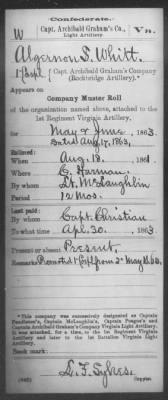 Confederate.
W
Capt. Archibald Graham's Co.,
Light Artillery
Va.
Algernon S. Whitt
Capt. Archibald Graham's Company
(Rockbridge Artillery).*
Appears on
Company Muster Roll
of the organization named above, attached to the
1st Regiment Virginia Artillery,
for May & June, 1863.
dated Aug. 17, 1863,
Enlisted:
When Aug. 13, 1861.
Where C. Harman.
By whom Lt. McLaughlin
Period 12 Mos.
Last paid:
By whom Capt. Christian
To what time Apr. 30, 1863
Present or absent Present,
Remarks: Promoted 1 Corpl from 3d May 1, 63.
*This company was successively designated as Captain
Pendleton's, Captain McLaughlin's, Captain Poague's and
Captain Archibald Graham's Company Virginia Light Artillery.
It was attached, for a time, to the 1st Regiment Virginia
Artillery and later to the 1st Battalion Virginia Light
Artillery.
Book mark:
L. T. Sykes.
(642)
Copyist.